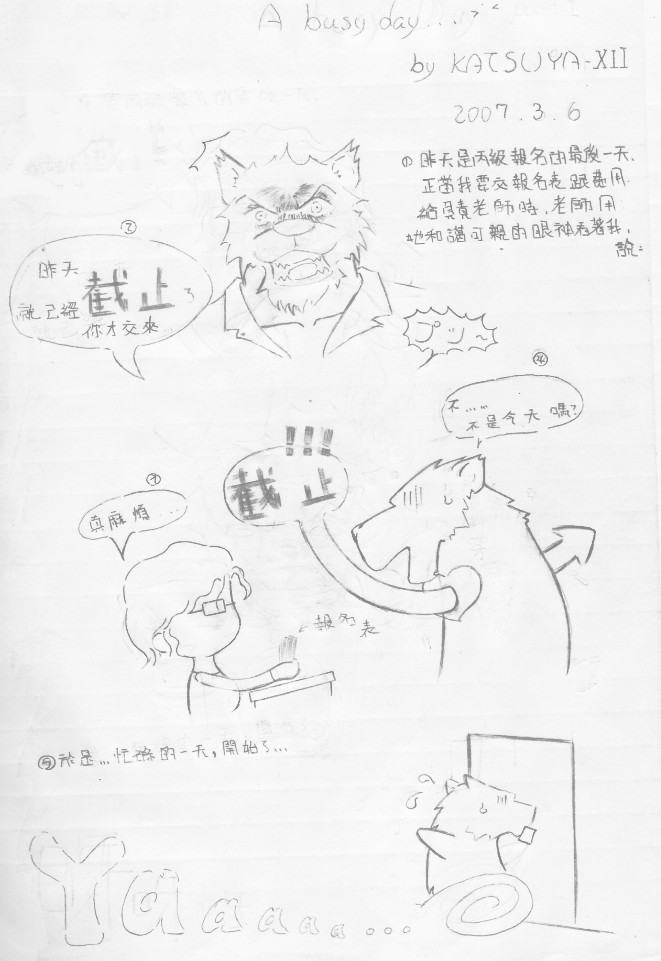 A busy day...
by KATSUYA-XII
2007.3.6
① 昨天是丙級報名的最後一天.
正當我要交報名表跟費用
給負責老師時,老師用
她和藹可親的眼神看著我,
說:
②
昨天
就已經截止了
你才交來...
プツ~
④
不......
不是今天嗎?
!!!
截止
真麻煩...
←報名表
⑤於是...忙碌的一天,開始了...
Yaaaaa...